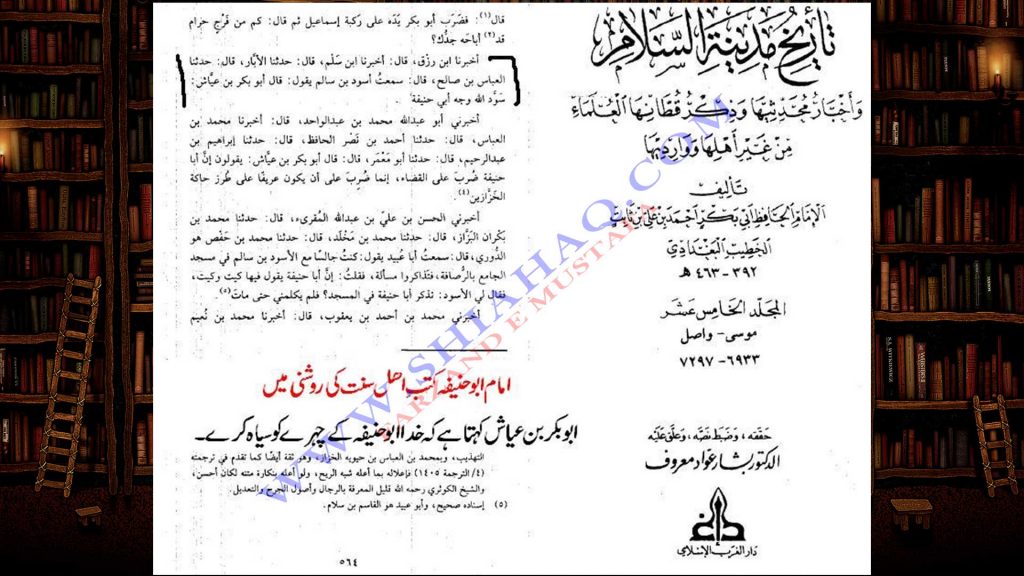 تاريخ مدينة السلام
وأخبار محدثيها وذكر قطانها العلماء
من غير أهلها ووارديها
تأليف
الإمام الحافظ أبي بكر أحمد بن علي بن ثابت
الخطيب البغدادي
٣٩٢-٤٦٣ هـ
المجلد الخامس عشر
موسى- واصل
٦٩٣٣-٧٢٩٧
حققه، وضبط نصه، وعلق عليه
الدكتور بشار عواد معروف
دار الغرب الإسلامي
قال(١): فضرب أبو بكر يده على ركبة إسماعيل ثم قال: كم من فرج حرام
قد(٢) أباحه جدك؟
أخبرنا ابن رزق، قال: أخبرنا ابن سلم، قال: حدثنا الأبار، قال: حدثنا
العباس بن صالح، قال: سمعت أسود بن سالم يقول: قال أبو بكر بن عياش:
سود الله وجه أبي حنيفة.
أخبرني أبو عبدالله محمد بن عبدالواحد، قال: أخبرنا محمد بن
العباس، قال: حدثنا أحمد بن نصر الحافظ، قال: حدثنا إبراهيم بن
عبدالرحيم، قال: حدثنا أبو معمر، قال: قال أبو بكر بن عياش: يقولون إن أبا
حنيفة ضرب على القضاء، إنما ضرب على أن يكون عريفا على طرز حاكة
الخزازين(٤).
أخبرني الحسن بن علي بن عبدالله المقرىء، قال: حدثنا محمد بن
بكران البزاز، قال: حدثنا محمد بن مخلد، قال: حدثنا محمد بن حفص هو
الدوري، قال: سمعت أبا عبيد يقول: كنت جالسا مع الأسود بن سالم في مسجد
الجامع بالرصافة، فتذاكروا مسألة، فقلت: إن أبا حنيفة يقول فيها كيت وكيت،
فقال لي الأسود: تذكر أبا حنيفة في المسجد؟ فلم يكلمني حتى مات(٥).
أخبرني محمد بن أحمد بن يعقوب، قال: أخبرنا محمد بن نعيم
امام ابو حنیفہ کتب اھل سنت کی روشنی میں
ابو بکر بن عیاش کہتا ہے کہ خدا ابو حنیفہ کے چہرے کو سیاہ کرے۔
التهذيب، وبمحمد بن العباس بن حيويه الخزاز، وهو ثقة أيضا كما تقدم في ترجمته
(٤/ الترجمة ١٤٠٥) فإعلاله بما أعله شبه الريح، ولو أعله بنكارة متنه لكان أحسن،
والشيخ الكوثري رحمه الله قليل المعرفة بالرجال وأصول الجرح والتعديل.
(٥) إسناده صحيح، وأبو عبيد هو القاسم بن سلام.
٥٦٤
WWW.SHIAHAQ.COM
E MUSTAFA